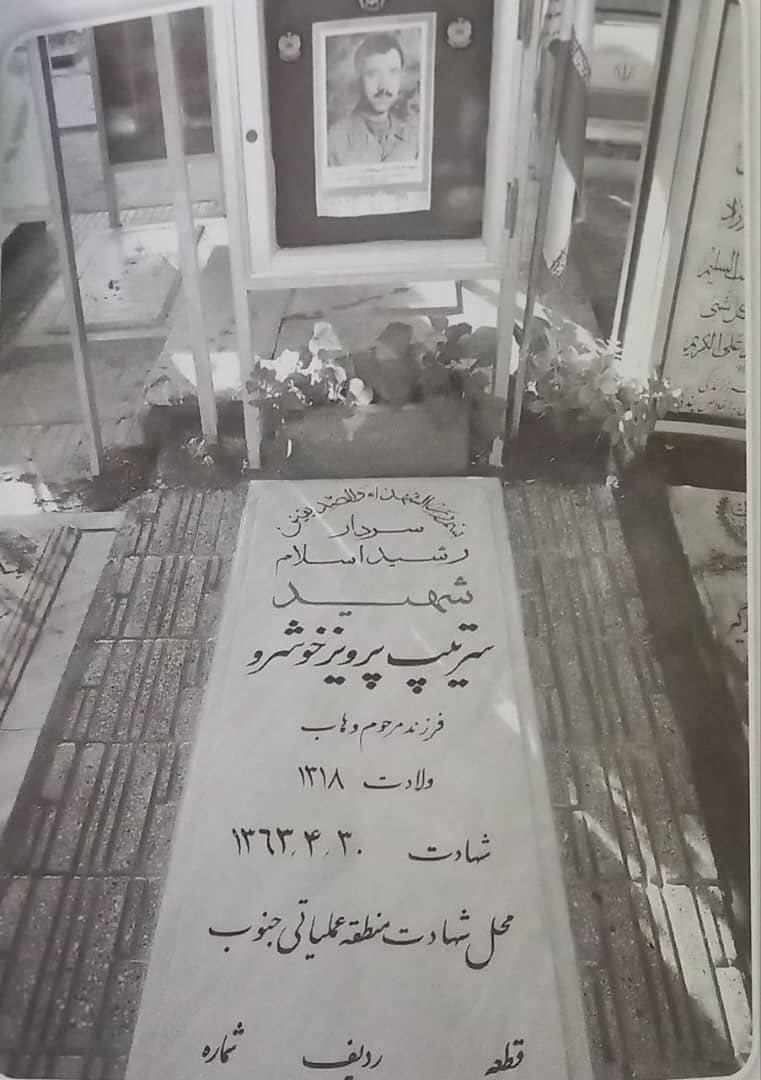 سردار
رشید اسلام
شهید
سرتیپ پرویز خوشرو
فرزند مرحوم وهاب
ولادت ۱۳۱۸
شهادت ۱۳۶۳٫۴٫۳۰
محل شهادت منطقه عملیاتی جنوب
قطعه ردیف شماره